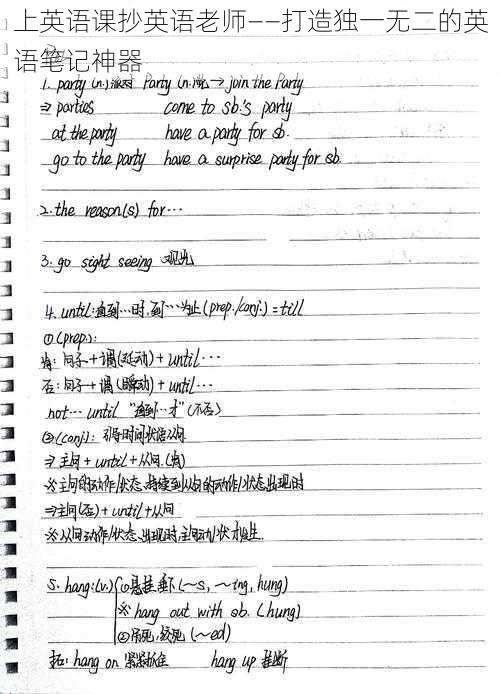 上英语课抄英语老师——打造独一无二的英
语笔记神器
1. party (n.)派对 Party (n.)党 → join the Party
⇒ parties come to sb.'s party
at the party have a party for sb.
go to the party have a surprise party for sb.
2. the reason(s) for…
3. go sight seeing 观光
4. until:直到…时,到…为止(prep./conj.) = till
①(prep.):
肯: 句子+谓(延动) + until …
否: 句子+谓(瞬动) + until …
not… until “直到…才”(不否)
②(conj.): 引导时间状语从句
⇒ 主句 + until + 从句.(肯)
※主句的动作/状态,持续到从句的动作/状态出现时
⇒主句(否) + until + 从句
※从句动作/状态出现时,主句动/状才发生.
5. hang:(v.) ①悬挂 垂下 (~s, ~ing, hung)
※ hang out with sb. (hung)
②吊死,绞死 (~ed)
拓: hang on 紧紧抓住 hang up 挂断